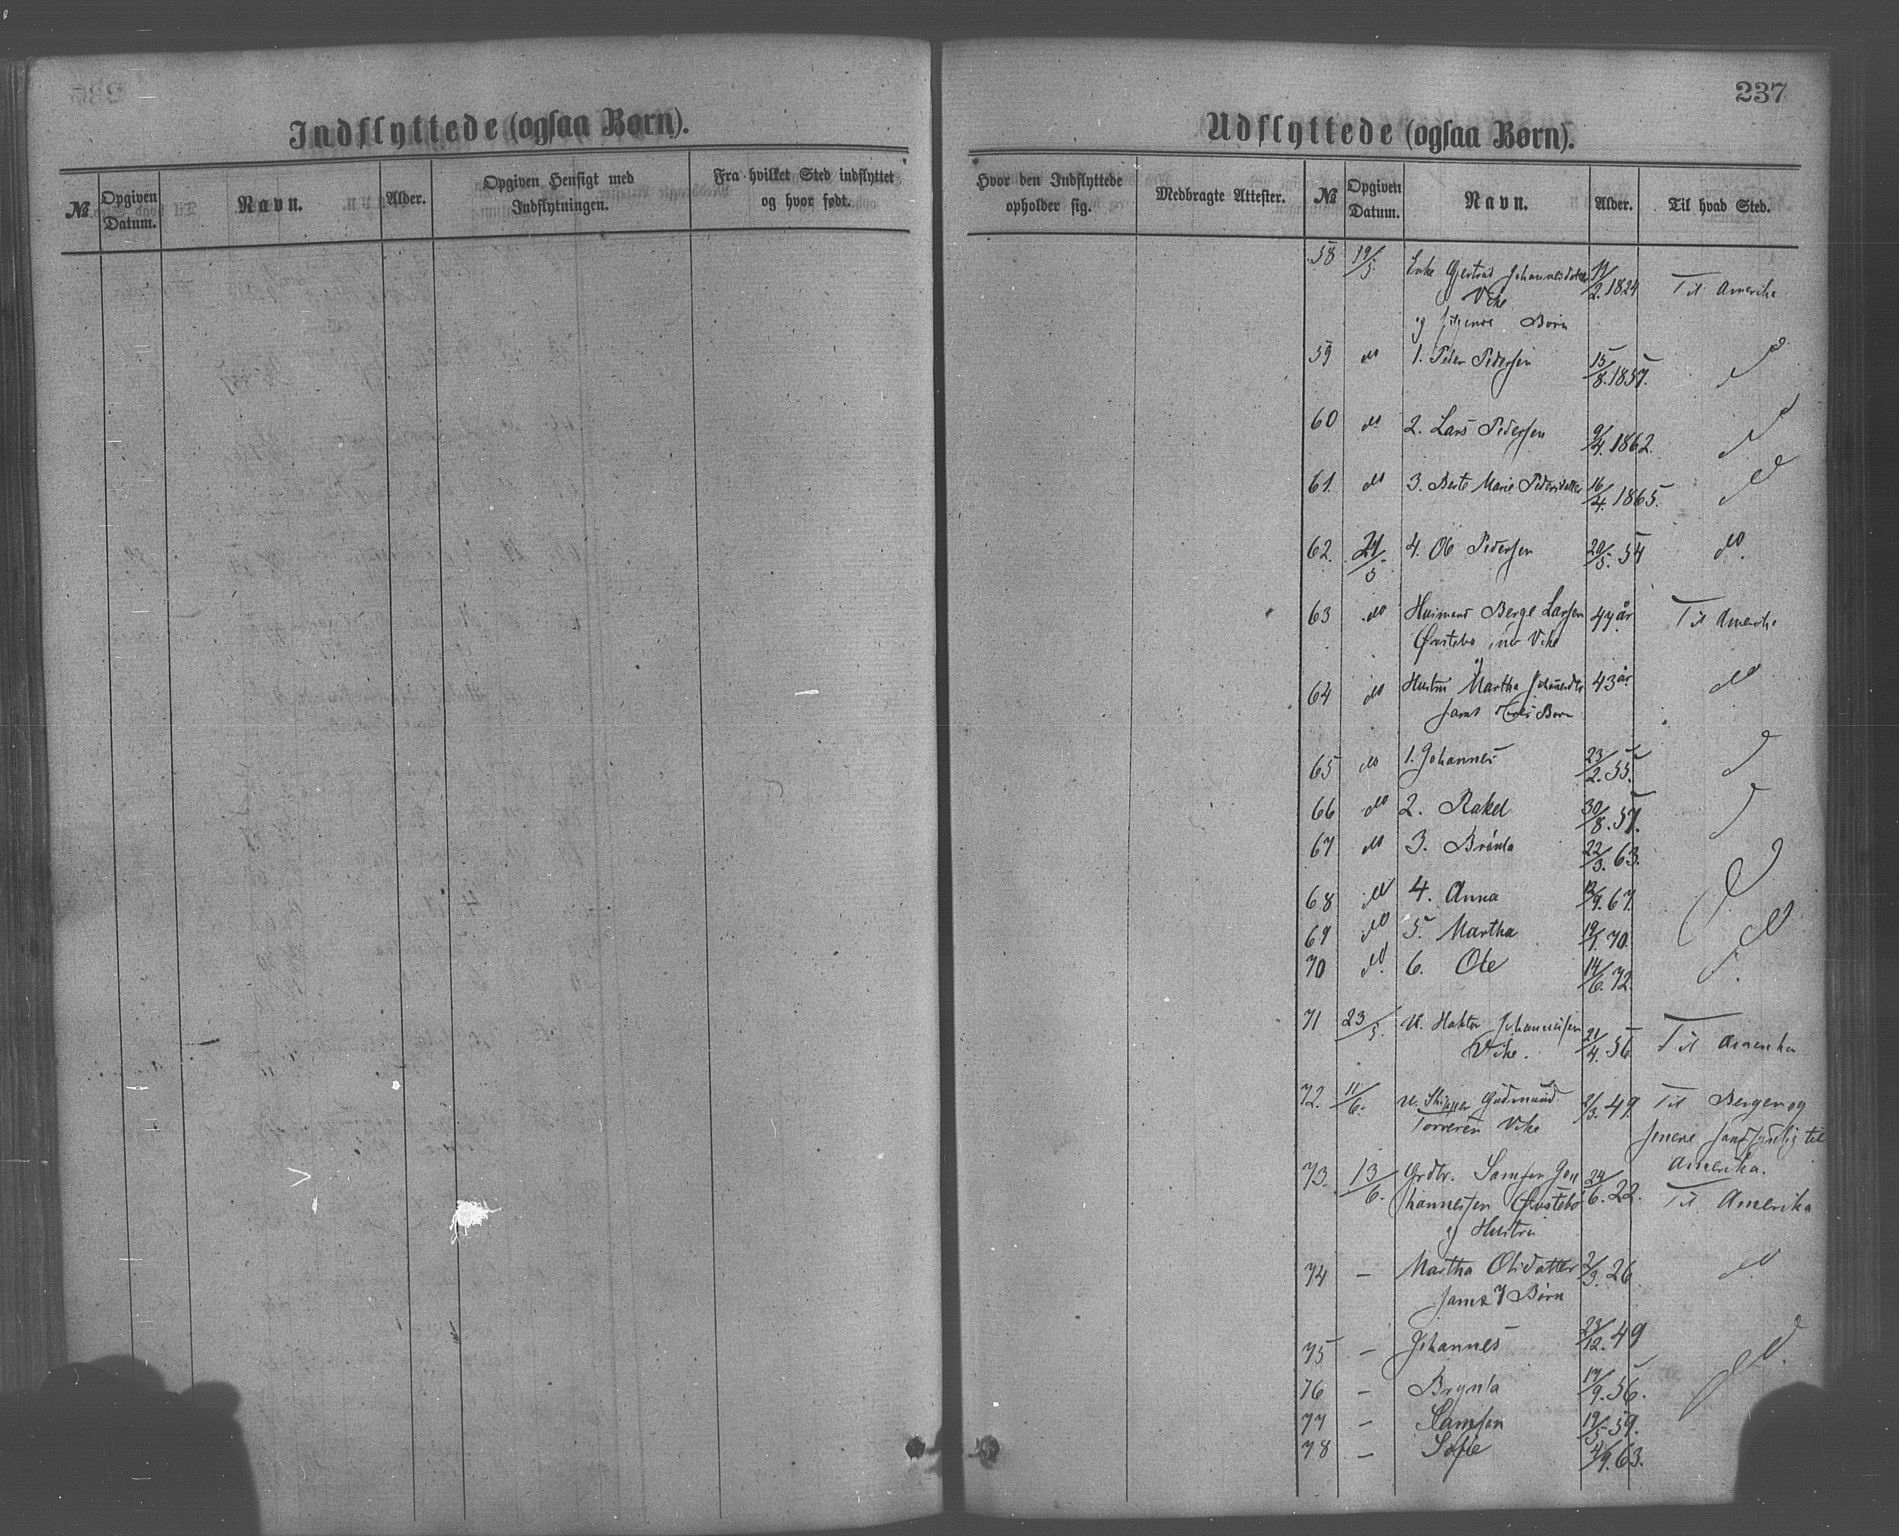 237
Indflyttede (ogsaa Børn).
Udflyttede (ogsaa Børn).
№ Opgiven Datum. Navn. Alder. Opgiven Hensigt med Indflytningen. Fra hvilket Sted indflyttet og hvor født.
Hvor den Indflyttede opholder sig. Medbragte Attester. № Opgiven Datum. Navn. Alder. Til hvad Sted.
58 19/5. Enke Gjertrud Johannesdatter 11/2.1824 Til Amerika
Vike
og følgende Børn
59 do 1. Peder Pedersen 15/8.1857. do
60 do 2. Lars Pedersen 9/4.1862. do
61. do 3. Berte Marie Pedersdatter 16/4.1865. do
62. 21/5 4. Ole Pedersen 20/5.54 do.
63 do Huusmand Berge Larsen 44 år Til Amerika
Øvstebø, Vike
64 do og Hustru Martha Johannesdtr 43 år do
samt Børn
65 do 1. Johannes 23/2.55. do
66 do 2. Rakel 30/8.57. do
67 do 3. Brønla 22/3.63.
68 do 4. Anna 12/9.67. do
69 do 5. Martha 19/1.70. do
70 do. 6. Ole 14/6.72. do
71 23/5. U. Johannessen 21/4.56 Til Amerika
Vike.
72. 11/6. U. Skipper Gudmund 2/3.49. Til Bergen og
Vike senere til
Amerika.
73. 13/6. Grdbr. Samson Jo= 24/6.22. Til Amerika
hannessen Øvstebø
og Hustru
74 – Martha Olsdatter 2/3.26 do
samt 7 Børn
75 – Johannes 23/12.49 do.
76 – Brynla 17/9.56.
77 – Samson 19/5.59.
78 – Sofie 4/9.63.